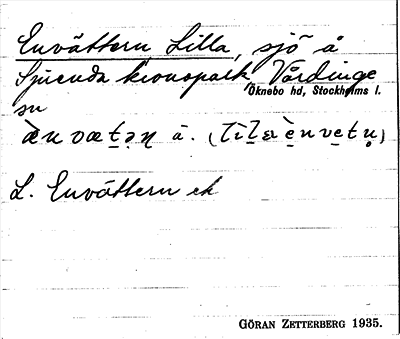 Envättern Lilla, sjö å
Sjuenda kronopark, Vårdinge
Öknebo hd, Stockholms l.
sn
L. Envättern ek
GÖRAN ZETTERBERG 1935.